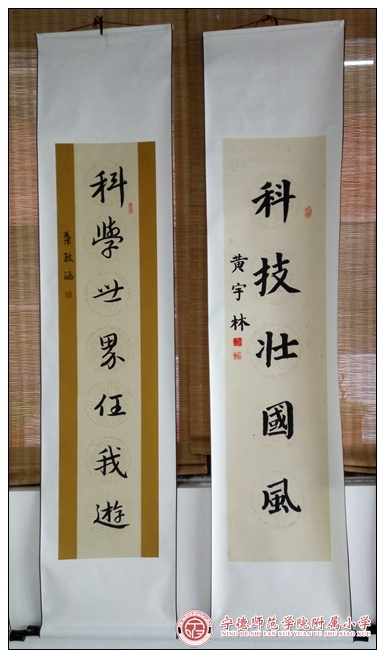 科技壮國風
黄宇林
科學世界任我遊
宁德师范学院附属小学
NING DE SHI FAN XUE YUAN FU SHU XIAO XUE